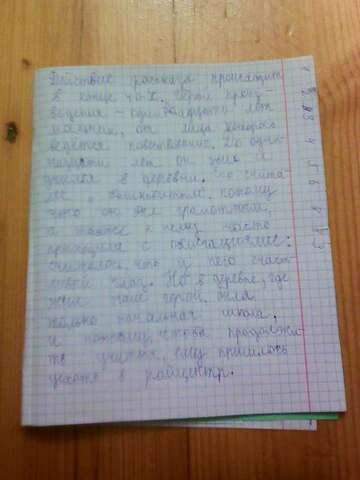 Действие рассказа происходит
в конце 40-х. Герой произ-
ведения – одиннадцати лет
мальчик, от лица которого
ведется повествование. До один-
надцати лет он жил и
учился в деревни. Его счита-
ли "башковитым", потому
что он был грамотным,
а также к нему часто
приходили с облигациями:
считалось, что у него счаст-
ливый глаз. Но в деревне, где
жил наш герой, была
только начальная школа
и поэтому, чтобы продолжи-
ть учиться, ему пришлось
уехать в райцентр.